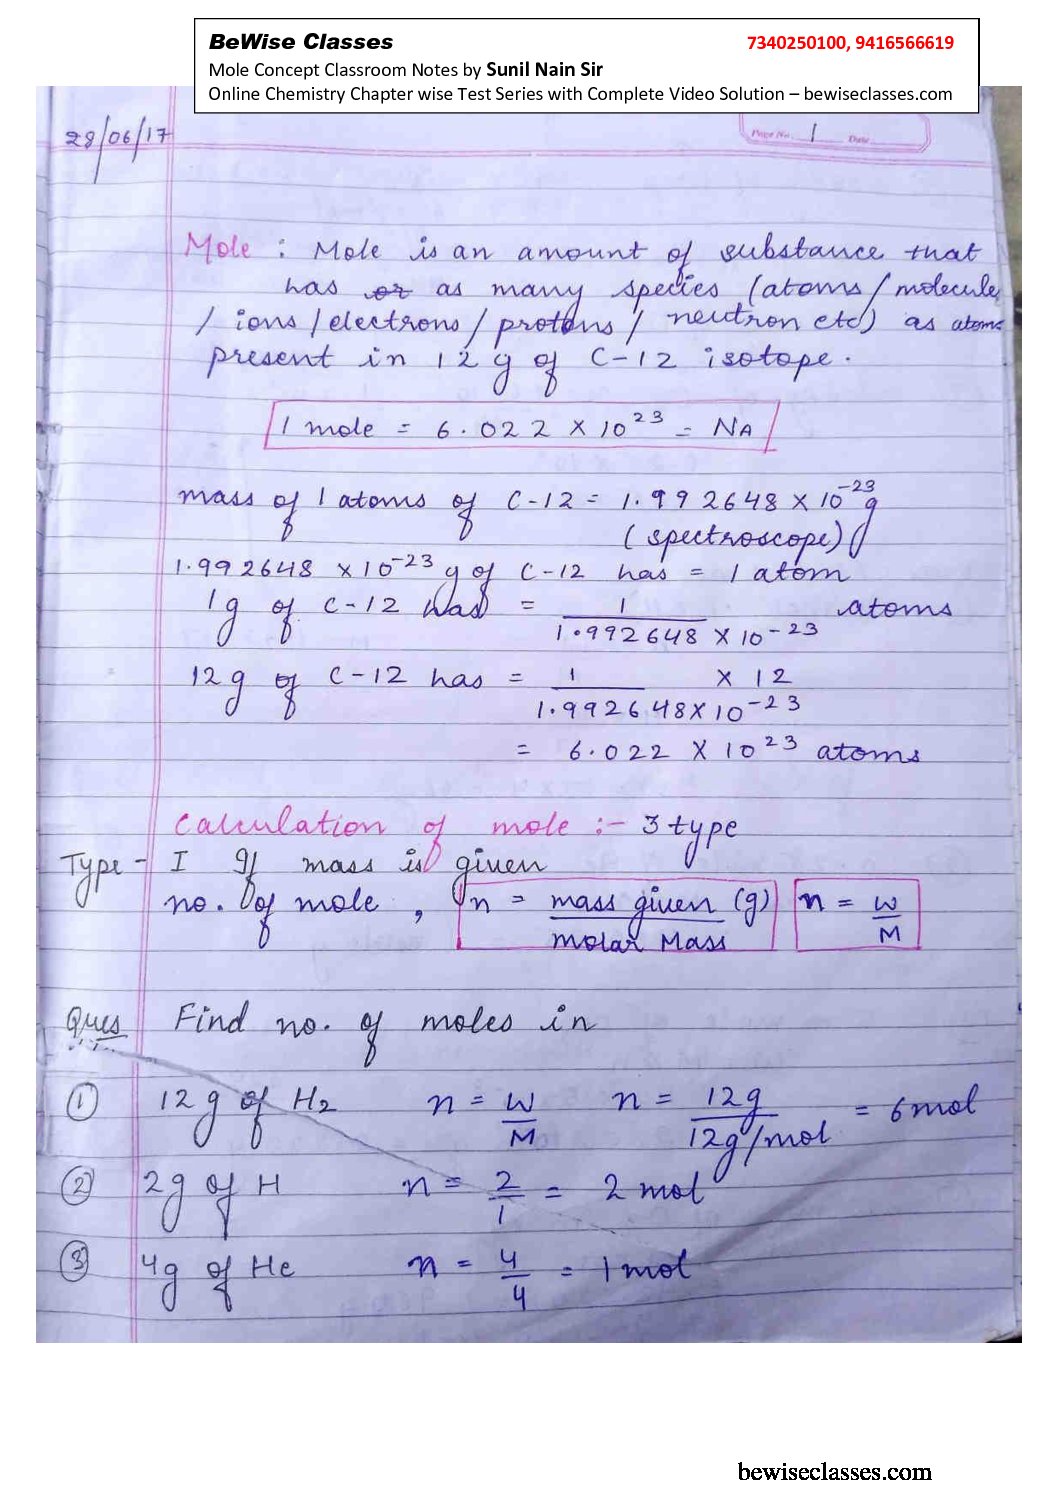 BeWise Classes 7340250100, 9416566619
Mole Concept Classroom Notes by Sunil Nain Sir
Online Chemistry Chapter wise Test Series with Complete Video Solution – bewiseclasses.com
28/06/17
Page No. 1 Date
Mole : Mole is an amount of substance that
has or as many species (atoms/molecules
/ ions/electrons/protons/ neutron etc) as atoms
present in 12 g of C-12 isotope.
1 mole = 6.022 × 10^23 = NA
mass of 1 atoms of C-12 = 1.992648 × 10^-23 g
(spectroscope)
1.992648 × 10^-23 g of C-12 has = 1 atom
1g of C-12 has = 1 / 1.992648 × 10^-23 atoms
12g of C-12 has = 1 / 1.992648 × 10^-23 × 12
= 6.022 × 10^23 atoms
Calculation of mole :- 3 type
Type - I If mass is given
no. of mole , n = mass given (g) / molar Mass n = W/M
Ques Find no. of moles in
① 12g of H2 n = W/M n = 12g / 12g/mol = 6 mol
② 2g of H n = 2/1 = 2 mol
③ 4g of He n = 4/4 = 1 mol
bewiseclasses.com